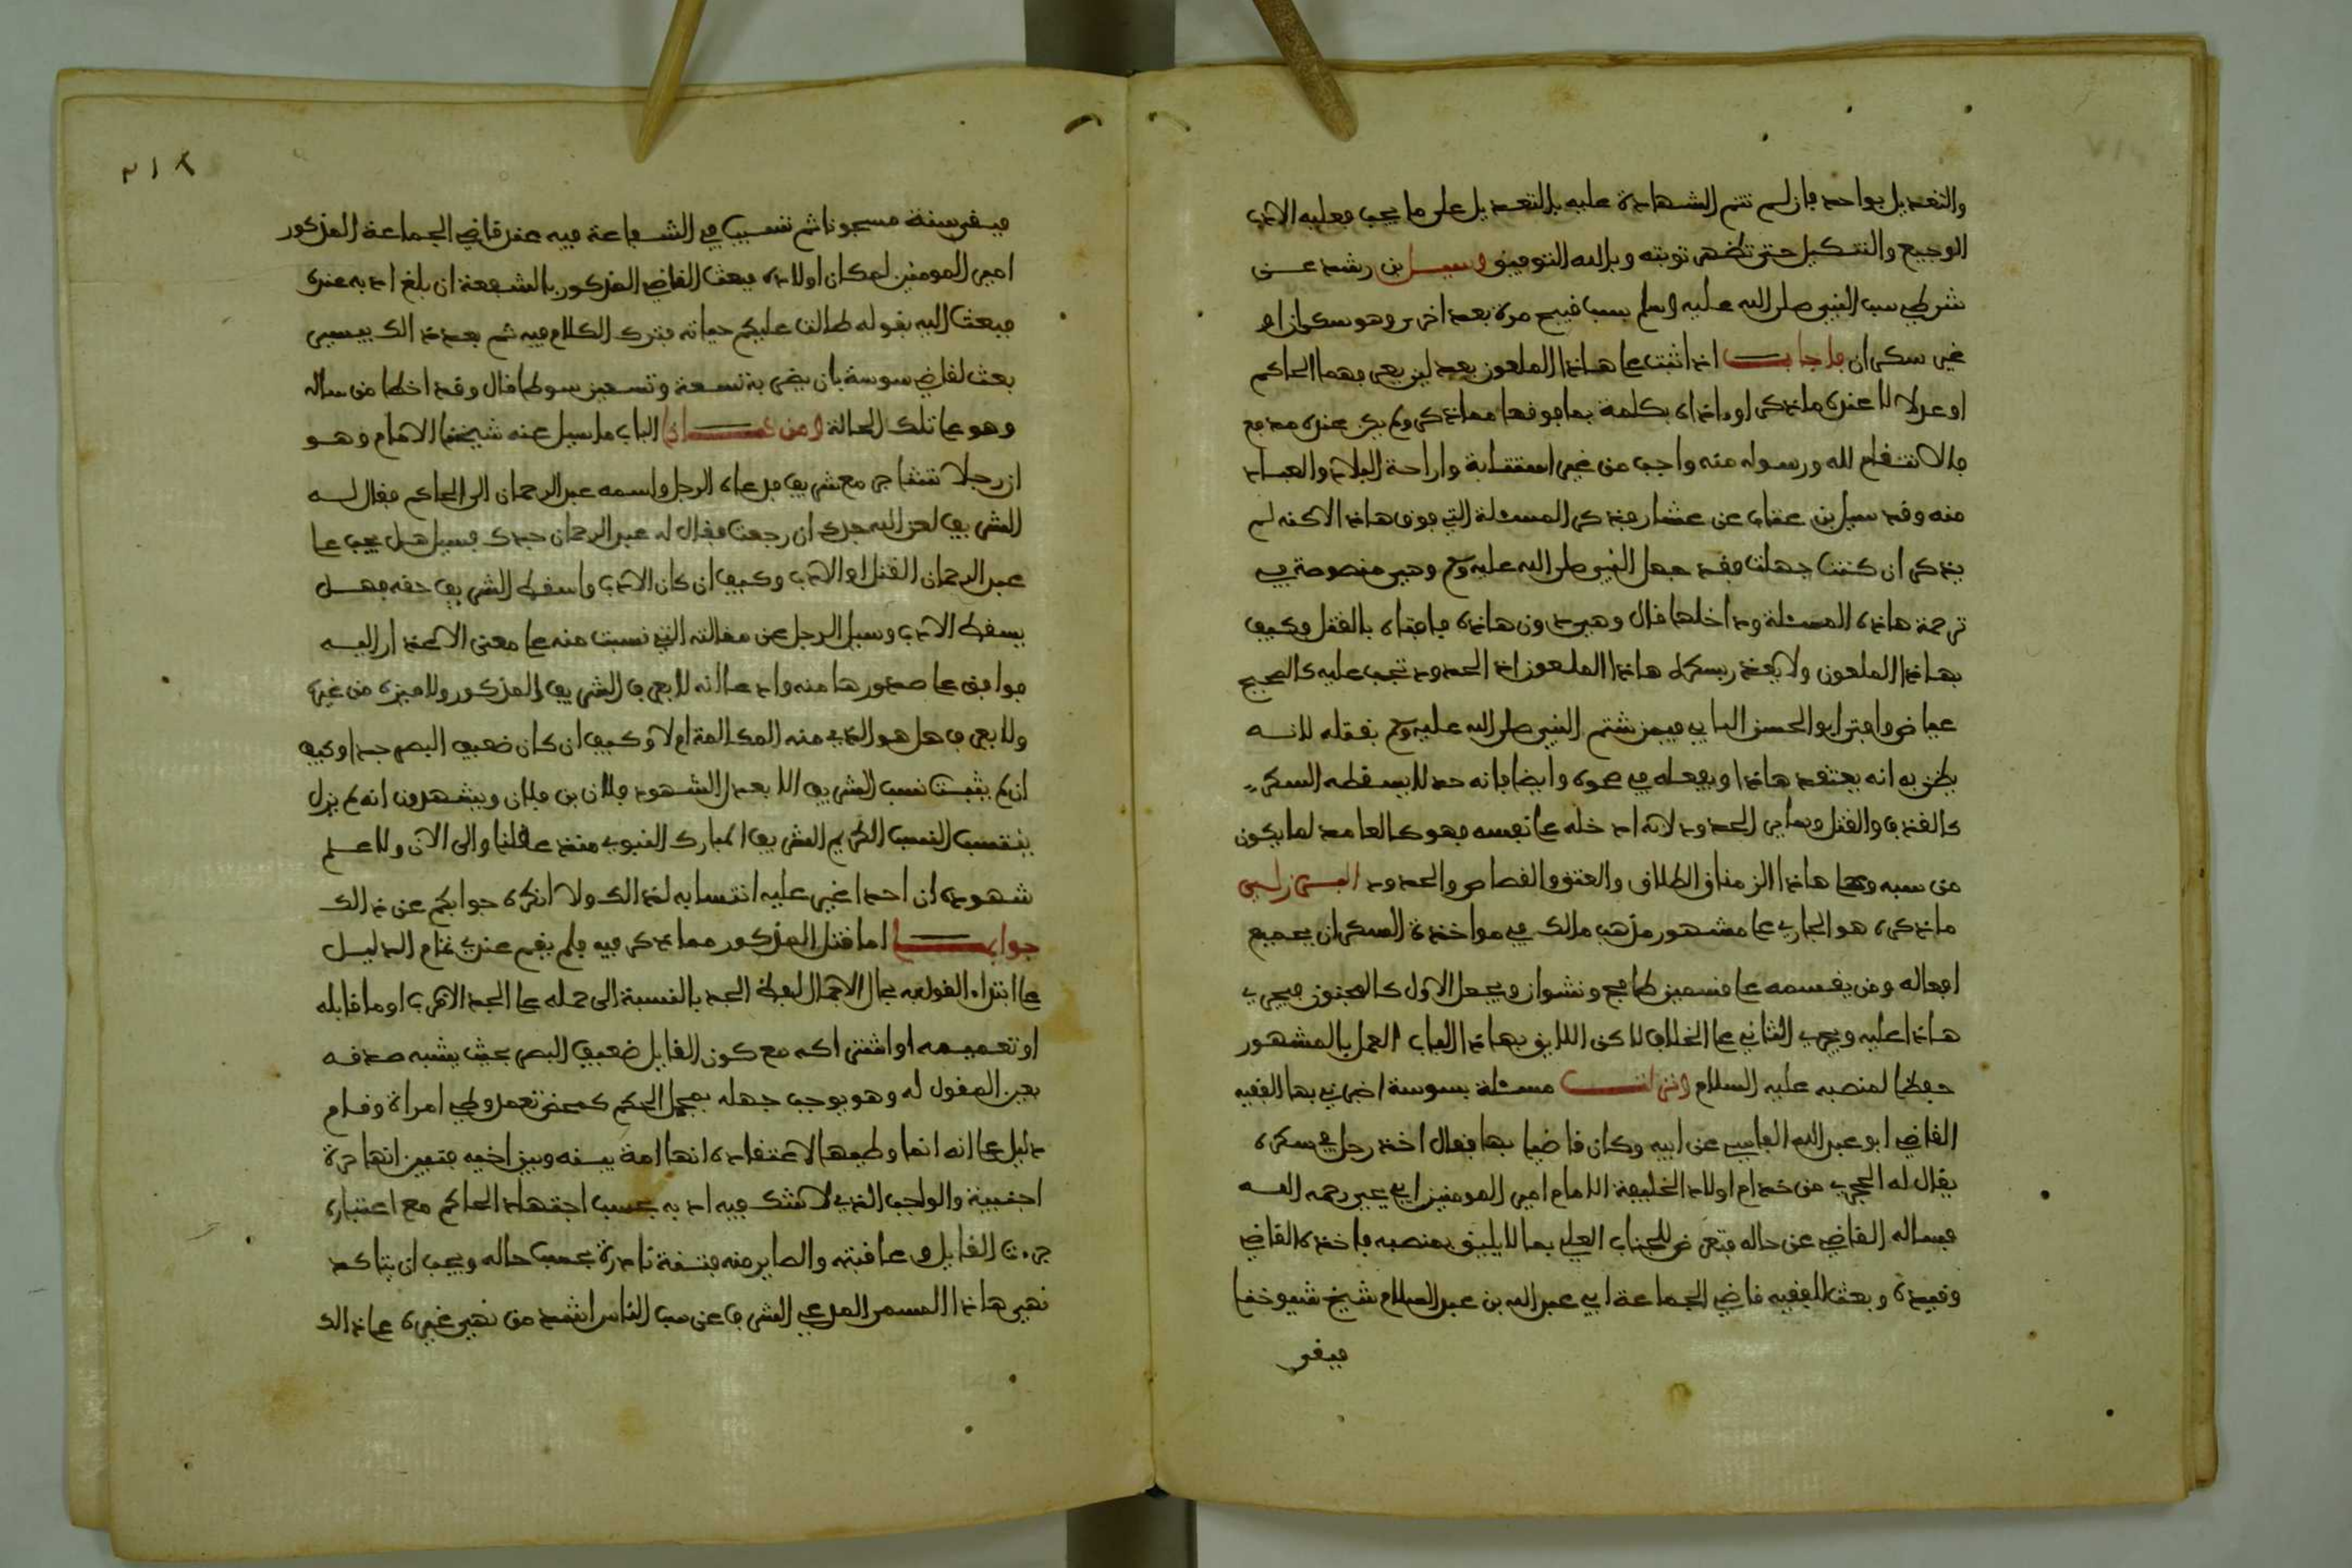 والتعديل بواحد فإن لم تتم الشهادة عليه بالتعديل على ما يجب فعليه الادب
الوجيع والتنكيل حتى تظهر توبته وبالله التوفيق وسيل بن رشد عن
شرطي سب النبي صلى الله عليه وسلم بسب قبيح مرة بعد اخرى وهو سكران او
غير سكران فاجاب اذا ثبت على هاذا الملعون بعدلين يعرفهما الحاكم
او عدلا لا عنده ما ذكر او ما اذاه بكلمة بما فوقها مما ذكر ولم يكن عنده مدفع
فالانتقام لله ورسوله منه واجب من غير استتابة واراحة البلاد والعباد
منه وقد سيل بن عتاب عن عشار فذكر المسئلة التي فوق هاذا الاكنه لم
يذكر ان كنت جهلت فقد جهل النبي صلى الله عليه وسلم وهي منصوصة في
ترجمة هاذه المسئلة وداخلها قال وهي دون هاذه فافتاه بالقتل وكيف
بهاذا الملعون ولا يعذر بسكره هاذا الملعون اذ الحدود تجب عليه كالصحيح
عياض وافتى ابو الحسن القابسي فيمن شتم النبي صلى الله عليه وسلم بقتله لانه
يظن به انه يعتقد هاذا ويفعله في صحوه وايضا فانه حد لا يسقطه السكر
كالقذف والقتل وساير الحدود لانه ادخله على نفسه فهو كالعامد لما يكون
من سببه وعلى هاذا الزمناه الطلاق والعتق والقصاص والحدود البرزلي
ما ذكره هو الجاري على مشهور مذهب مالك في مواخذة السكران بجميع
افعاله ومن يقسمه على قسمين طافح ونشوان ويجعل الاول كالمجنون فيجري
هاذا عليه ويجري الثاني على الخلاف لاكن اللايق بهاذا الباب العمل بالمشهور
حفظا لمنصبه عليه السلام ونزلت مسئلة بسوسة اخبرني بها الفقيه
القاضي ابو عبد الله القابسي عن ابيه وكان قاضيا بها فقال اخذ رجل في سكره
يقال له الحجري من خدام اولاد الخليفة الامام امير المومنين ابي يحيى رحمه الله
فساله القاضي عن حاله فتعرض للجناب العلي بما لا يليق بمنصبه فاخذه القاضي
وقيده وبعث للفقيه قاضي الجماعة ابي عبد الله بن عبد السلام شيخ شيوخنا
فبقي
٣١٢
فبقي سنة مسجونا ثم تسبب في الشفاعة فيه عند قاضي الجماعة المذكور
امير المومنين لمكان اولاده فبعث القاضي المذكور بالشفعة ان بلغ ادبه عنده
فبعث اليه بقوله طالت عليكم حياته فترك الكلام فيه ثم بعد ذالك بيسير
بعث لقاضي سوسة بان يضربه تسعة وتسعين سوطا قال وقد اخطا من ساله
وهو على تلك الحالة ومن هاذا الباب ما سيل عنه شيخنا الامام وهو
ان رجلا تشاجر مع شريف فدعاه الرجل واسمه عبد الرحمان الى الحاكم فقال له
الشريف لعن الله جدك ان رجعت فقال له عبد الرحمان جدك فسيل هل يجب على
عبد الرحمان القتل او الادب وكيف ان كان الادب واسقط الشريف حقه فهل
يسقط الادب وسيل الرجل عن مقالته التي نسبت منه على معنى الاعذار اليه
فوافق على صدورها منه وادعا انه لا يعرف الشريف المذكور ولا ميزه من غيره
ولا يعرف هل هو الذي منه المكالمة ام لا وكيف ان كان ضعيف البصر جدا وكيف
ان لم يثبت نسب الشريف الا بعدل الشهود فلان بن فلان ويشهدون انه لم يزل
ينتسب النسب الكريم الشريف المبارك النبوي منذ عقلنا والى الان ولا علم
شهوده ان احدا غير عليه انتسابه لذالك ولا انكره جوابكم عن ذالك
جوابها اما قتل المذكور مما ذكر فيه فلم يقم عندي تمام الدليل
على ابتداء القول به بحال الاجمال لفظ الجد بالنسبة الى حمله على الجد الاقرب او ما قابله
او تعميمه او اشتراكه مع كون القايل ضعيف البصر بحيث يشبه صدقه
بعين المقول له وهو يوجب جهله بمحل الحكم كمحض تعمد وطي امراة وقام
دليل على انه انما وطيها لاعتقاده انها امة بينه وبين اخيه فتبين انها حرة
اجنبية والواجب الذي لا شك فيه ادبه بحسب اجتهاد الحاكم مع اعتباره
جرءة القايل وعاقبته والصاير منه فتنة نادرة بحسب حاله ويجب ان يتاكد
نهي هاذا المسمى المدعي الشرف عن سب الناس اشد من نهي غيره على ذالك